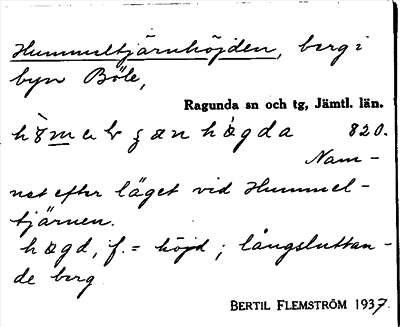 Hummeltjärnhöjden, berg i
byn Böle,
Ragunda sn och tg, Jämtl. län.
högda 820.
Nam-
net efter läget vid Hummel-
tjärnen.
hægd, f. = höjd; långsluttan-
de berg
BERTIL FLEMSTRÖM 1937.